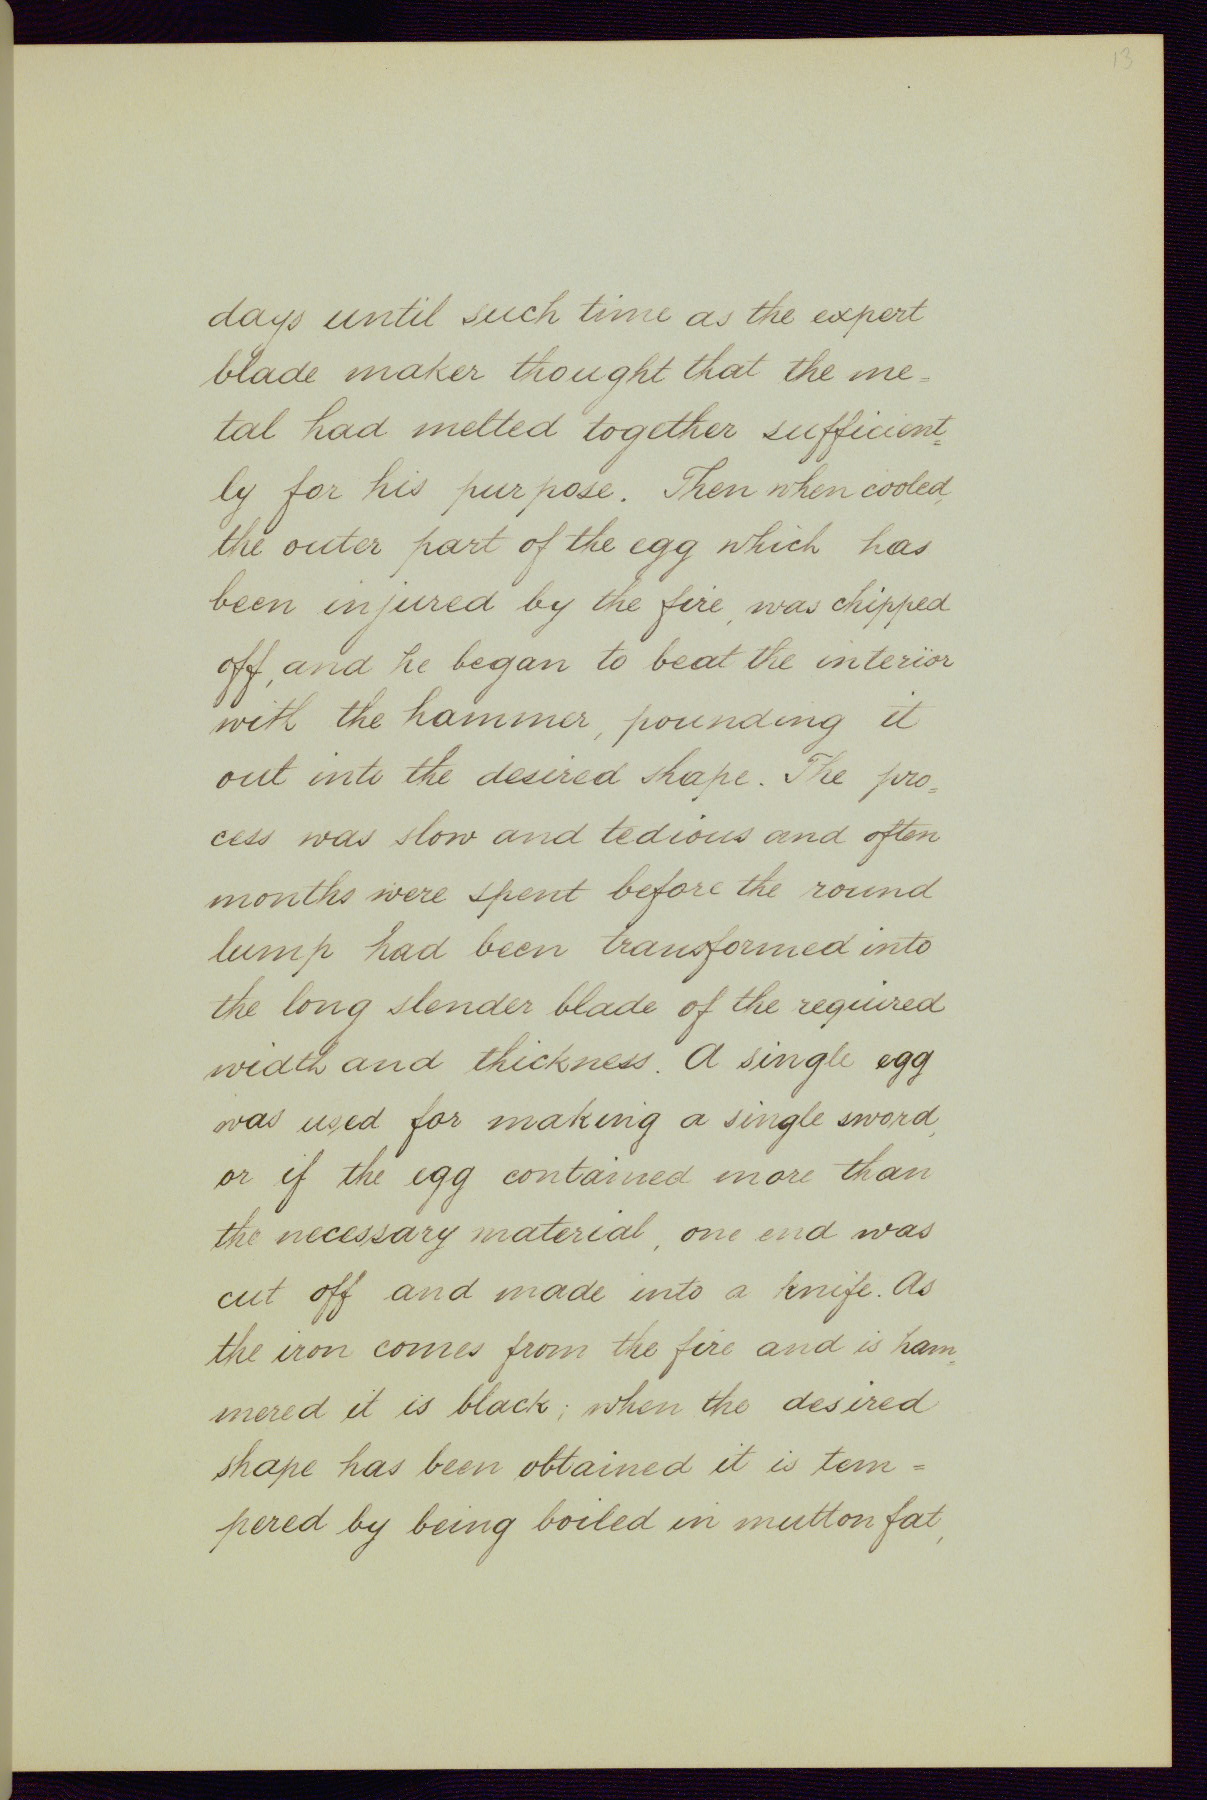 13
days until such time as the expert
blade maker thought that the me=
tal had melted together sufficient=
ly for his purpose. Then when cooled,
the outer part of the egg which has
been injured by the fire, was chipped
off, and he began to beat the interior
with the hammer, pounding it
out into the desired shape. The pro=
cess was slow and tedious and often
months were spent before the round
lump had been transformed into
the long slender blade of the required
width and thickness. A single egg
was used for making a single sword,
or if the egg contained more than
the necessary material, one end was
cut off and made into a knife. As
the iron comes from the fire and is ham=
mered it is black; when the desired
shape has been obtained it is tem=
pered by being boiled in mutton fat,